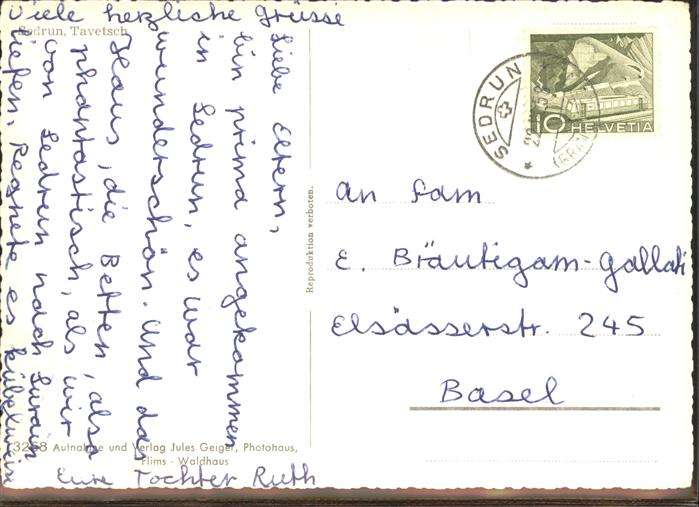 Viele herzliche Grüsse
Sedrun, Tavetsch
Liebe Eltern,
bin prima angekommen
in Sedrun, es war
wunderschön. Und das
Haus, die Betten, alss
phantastisch, als wir
von Sedrun nach Surain
liefen, Regnete es kübelweise
Eure Tochter Ruth
3268 Aufnahme und Verlag Jules Geiger, Photohaus,
Flims - Waldhaus
Reproduktion verboten.
SEDRUN
10 HELVETIA
an Fam
E. Bräutigam-Gallati
Elsässerstr. 245
Basel